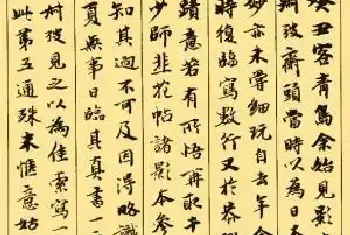 癸丑客青岛余始見影
州蛟齋頭當時以為日本
妙亦未嘗細玩自去年
時復臨寫數行又於
蹟意若有所悟再取
少師韭花帖諸影本參
知其逈不可及因得略識
夏無事日臨其真書一
州彼見之以為佳索寫一
此第五通殊未愜意姑